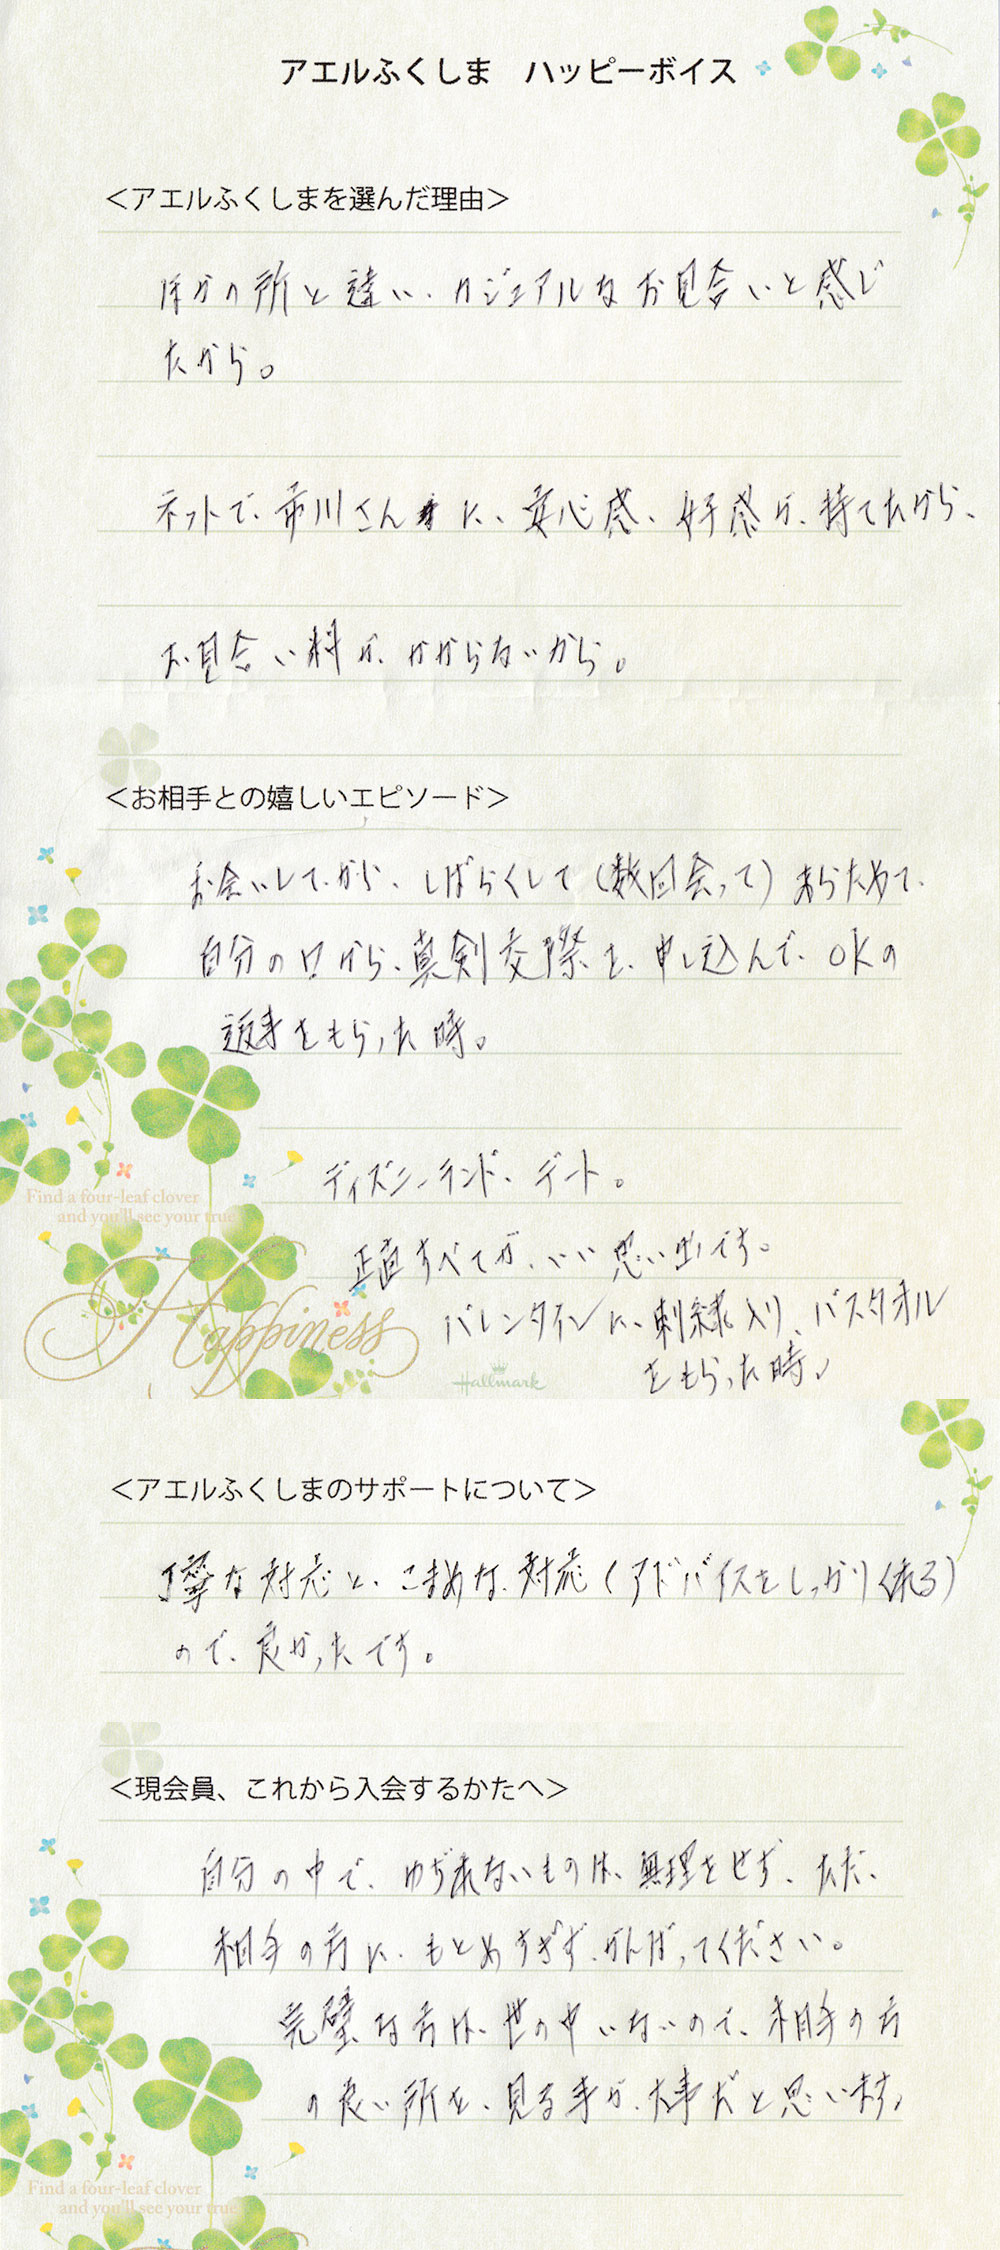 アエルふくしま　ハッピーボイス
＜アエルふくしまを選んだ理由＞
ほかの所と違い、カジュアルなお見合いと感じ
たから。
ネットで、市川さんに、安心感、好感が、持てたから、
お見合い料が、かからないから。
＜お相手との嬉しいエピソード＞
お会いしてから、しばらくして（数回会って）あらためて、
自分の口から、真剣交際を、申し込んで、OKの
返事をもらった時。
ディズニーランド、デート。
正直すべてが、いい思い出です。
バレンタインに、刺繍入り、バスタオル
をもらった時、
Find a four-leaf clover
and you'll see your true
Happiness
Hallmark
＜アエルふくしまのサポートについて＞
丁寧な対応と、こまめな、対応（アドバイスをしっかりくれる）
ので、良かったです。
＜現会員、これから入会するかたへ＞
自分の中で、ゆずれないものは、無理をせず、ただ、
相手の方に、もとめすぎず、がんばってください。
完璧な方は、世の中いないので、相手の方
の良い所を、見る事が、大事だと思います、
Find a four-leaf clover
and you'll see your true